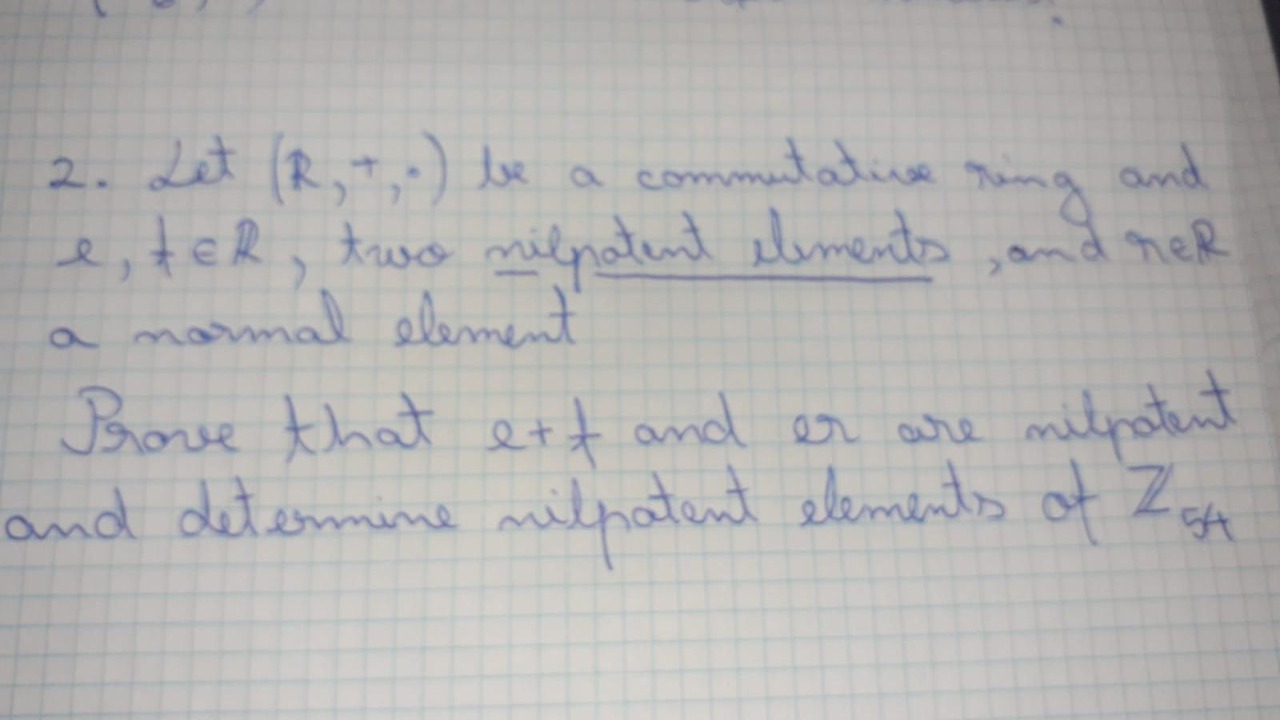 2. Let (R,+,·) be a commutative ring and
e, f ∈ R, two nilpatent elements, and r∈R
a normal element
Prove that e+f and er are nilpatent
and determine nilpatent elements of Z₅₄